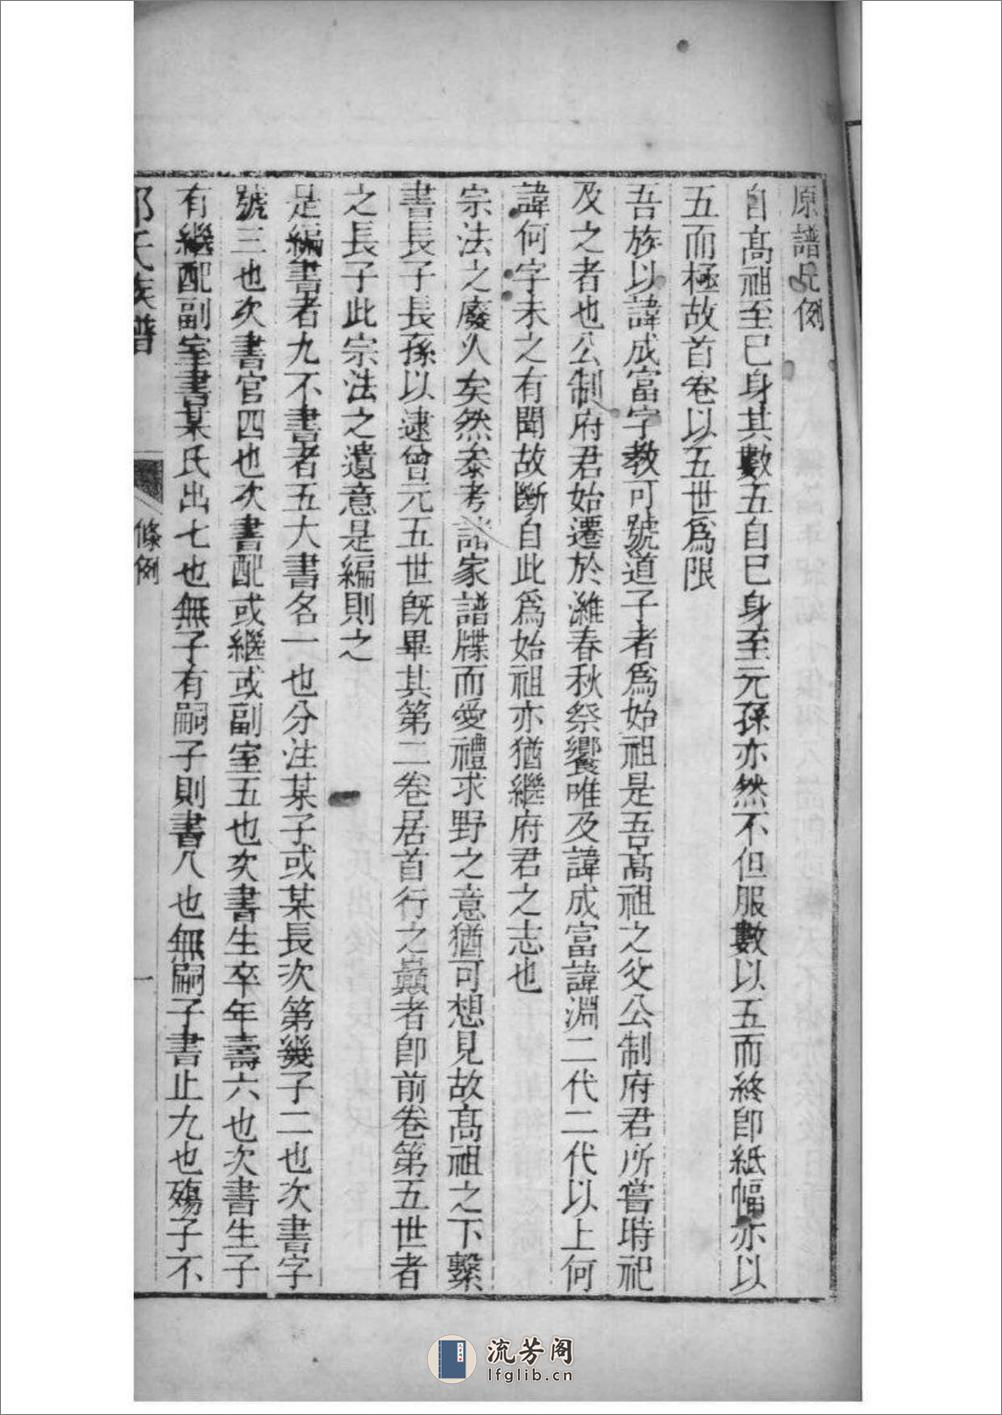 原譜凡例
自高祖至巳身其數五自巳身至元孫亦然不但服數以五而終即紙幅亦以
五而極故首卷以五世爲限
吾族以諱成富字教可號道子者爲始祖是吾高祖之父公制府君所嘗時祀
及之者也公制府君始遷於濰春秋祭饗唯及諱成富諱淵二代二代以上何
諱何字未之有聞故斷自此爲始祖亦猶繼府君之志也
宗法之廢久矣然叅考諸家譜牒而愛禮求野之意猶可想見故高祖之下繫
書長子長孫以逮曾元五世旣畢其第二卷居首行之巔者即前卷第五世者
之長子此宗法之遺意是編則之
是編書者九不書者五大書名一也分注某子或某長次第幾子二也次書字
號三也次書官四也次書配或繼或副室五也次書生卒年壽六也次書生子
有繼配副室書某氏出七也無子有嗣子則書八也無嗣子書止九也殤子不
氏族譜
條例
一
流芳阁
lfglib.cn